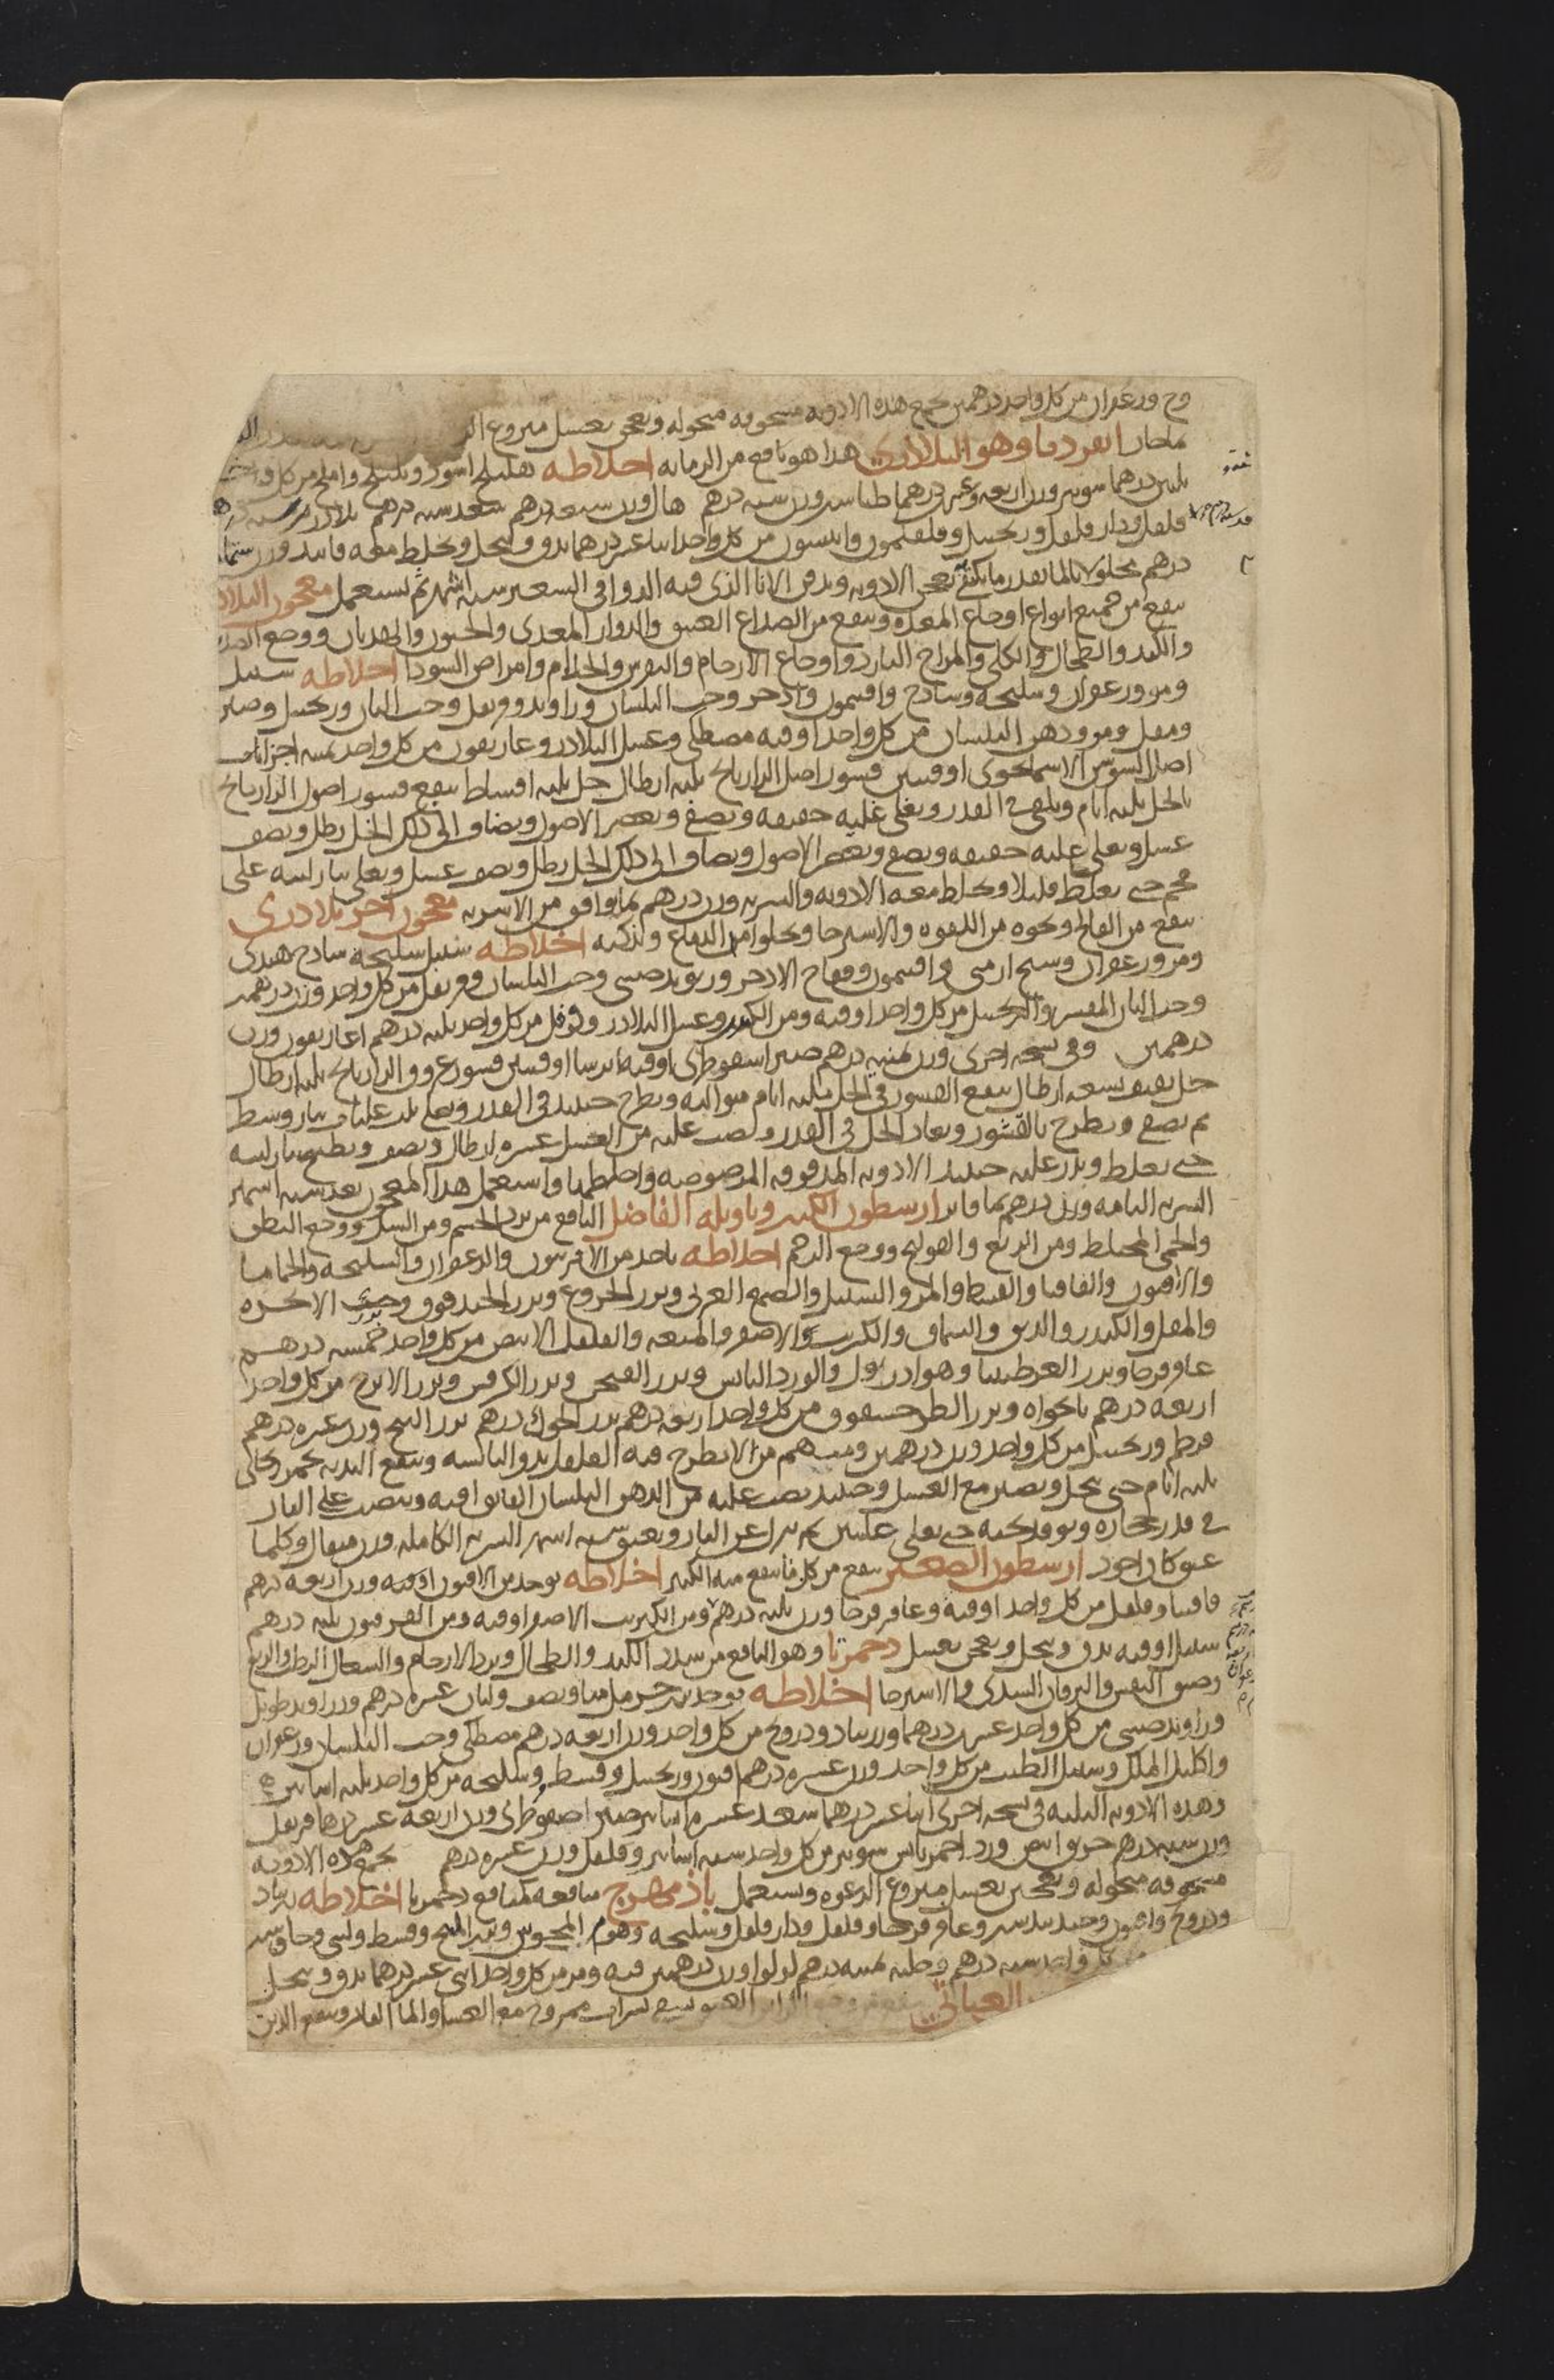 وج وزعفران من كل واحد درهمين تجمع هذه الادويه مسحوقه منخوله وتعجن بعسل منزوع
انقرديا وهو البلادري هذا هو نافع من الرمانه اخلاطه هليلج اسود وبليلج واملج من كل واحد
ثلثين درهما شونيز وزن اربعه وعشرين درهما طباشير وزن سته درهم هال وزن سبعه درهم سعد سته درهم بلادر
فلفل ودارفلفل وزنجبيل وفلفلمون وانيسون من كل واحد اثنا عشر درهما يدق وينخل ويخلط معه فانيد وزن
درهم محلولا بالما بقدر ما يكفي تعجن الادويه ويدفن الانا الذى فيه الدوا فى الشعير سته اشهر ثم يستعمل معجون البلادر
ينفع من جميع انواع اوجاع المعده وينفع من الصداع العتيق والدوار المعدى والجنون والهذيان ووجع الصدر
والكبد والطحال والكلى والمزاج البارد واوجاع الارحام والنقرس والجذام وامراض السودا اخلاطه سنبل
ومر وزعفران وسليخه وساذج وافتيمون واذخر وحب البلسان وراوند وقرنفل وحب البان وزنجبيل وصبر
ومقل ومر ودهن البلسان من كل واحد اوقيه مصطكى وعسل البلادر وغاريقون من كل واحد خمسه اجزا
اصل السوسن الاسمانجوى اوقيتين قشور اصل الرازيانج ثلثه ارطال خل ثلثه اقساط ينقع قشور اصول الرازيانج
بالخل ثلثه ايام ويلقى فى القدر ويغلى غليه خفيفه ويصفى ويعصر الاصول ويضاف الى ذلك الخل رطل ونصف
عسل ويغلى غليه خفيفه ويصفى ويعصر الاصول ويضاف الى ذلك الخل رطل ونصف عسل ويغلى بنار لينه على
جمر حتى يغلظ قليلا ويخلط معه الادويه والشربه وزن درهم بما وافق من الاشربه معجون اخر بلادرى
ينفع من الفالج ونحوه من اللقوه والاسترخا ويجلوا من الدماغ ويذكيه اخلاطه سنبل سليخه ساذج هندى
ومر وزعفران وشيح ارمنى وافتيمون وفقاح الاذخر وريوند صينى وحب البلسان وقرنفل من كل واحد وزن درهمين
وحب البان المقشر والزنجبيل من كل واحد اوقيه ومن الكندر وعسل البلادر وفوفل من كل واحد ثلثه درهم اغاريقون وزن
درهمين وفى نسخه اخرى وزن ثمنيه درهم صبر اسقوطرى اوقيه ايرسا اوقيتين قشور عروق الرازيانج ثلثه ارطال
خل ثقيف تسعه ارطال ينقع القشور فى الخل ثلثه ايام متواليه ويطرح حينئذ فى القدر ويغلى ثلث غليات بنار وسط
ثم يصفى ويطرح بالقشور ويعاد الخل فى القدر ويصب عليه من العسل عشره ارطال ونصف ويطبخ بنار لينه
حتى يغلظ ويذر عليه حينئذ الادويه المدقوقه المرضوضه واخلطها واستعمل هذا المعجون بعد سته اشهر
الشربه التامه وزن درهم بما فاتر ارسطون الكبير وتاويله الفاضل النافع من برد الجسم ومن السل ووجع البطن
والحمى المختلط ومن الربع والقولنج ووجع الرحم اخلاطه ياخذ من الافربيون والزعفران والسليخه والحماما
والافيون والقاقيا والقسط والمر والسنبل والصمغ العربى وبزر الخروع وبزر الحندقوق وبزر الانجره
والمقل والكندر والدبق والسماق والكبريت الاصفر والميعه والفلفل الابيض من كل واحد خمسه درهم
عاقرقرحا وبزر العرطنيثا وهو اذريول والورد اليابس وبزر الفيجن وبزر الكرفس وبزر الاترج من كل واحد
اربعه درهم نانخواه وبزر الطرحشقوق من كل واحد اربعه درهم بزر الحوك درهم بزر البنج وزن عشره درهم
قرطم وزنجبيل من كل واحد وزن درهمين ومنهم من لا يطرح فيه الفلفل يدق اليابسه وينقع النديه بخمر ريحانى
ثلثه ايام حتى ينحل ويصير مع العسل وحينئذ يصب عليه من الدهن البلسان الفايق اوقيه وينصب على النار
فى قدر حجاره ويوقد تحته حتى يغلى غليتين ثم ينزل عن النار ويعتق سته اشهر الشربه الكامله وزن مثقال وكلما
عتق كان اجود ارسطون الصغير ينفع من كل ما ينفع منه الكبير اخلاطه يوخذ من الافيون اوقيه وزن اربعه درهم
قاقيا وفلفل من كل واحد اوقيه وعاقرقرحا وزن ثلثه درهم ومن الكبريت الاصفر اوقيه ومن الفربيون ثلثه درهم
سنبل اوقيه يدق وينخل ويعجن بعسل دحمرثا وهو النافع من سدد الكبد والطحال وبرد الارحام والسعال الرطب والربع
وضيق النفس واليرقان السددى والاسترخا اخلاطه يوخذ بزر حرمل منا ونصف ولبان عشره درهم وزراوند طويل
وراوند صينى من كل واحد عشرين درهما وزرنباد ودرونج من كل واحد وزن اربعه درهم مصطكى وحب البلسان وزعفران
واكليل الملك وسنبل الطيب من كل واحد وزن عشره درهم افيون وزنجبيل وقسط وسليخه من كل واحد ثلثه اساتير
وهذه الادويه الثلثه فى نسخه اخرى اثنا عشر درهما سعد عشره اساتير صبر اصقوطرى وزن اربعه عشر درهما قرنفل
وزن سته درهم خربق ابيض ورد احمر يابس شونيز من كل واحد سته اساتير وفلفل وزن عشره درهم تجمع هذه الادويه
مسحوقه منخوله وتعجن بعسل منزوع الرغوه ويستعمل باذمهرج منافعه كمنافع دحمرثا اخلاطه زرنباد
ودرونج وافيون وجندبيدستر وعاقرقرحا وفلفل ودارفلفل وسليخه وهوم المجوس وبزر البنج وقسط ولبنى
كل واحد سته درهم وحلبه ثمنيه درهم لولوا وزن درهمين قنه ومر من كل واحد اثنى عشر درهما يدق وينخل
العياثى